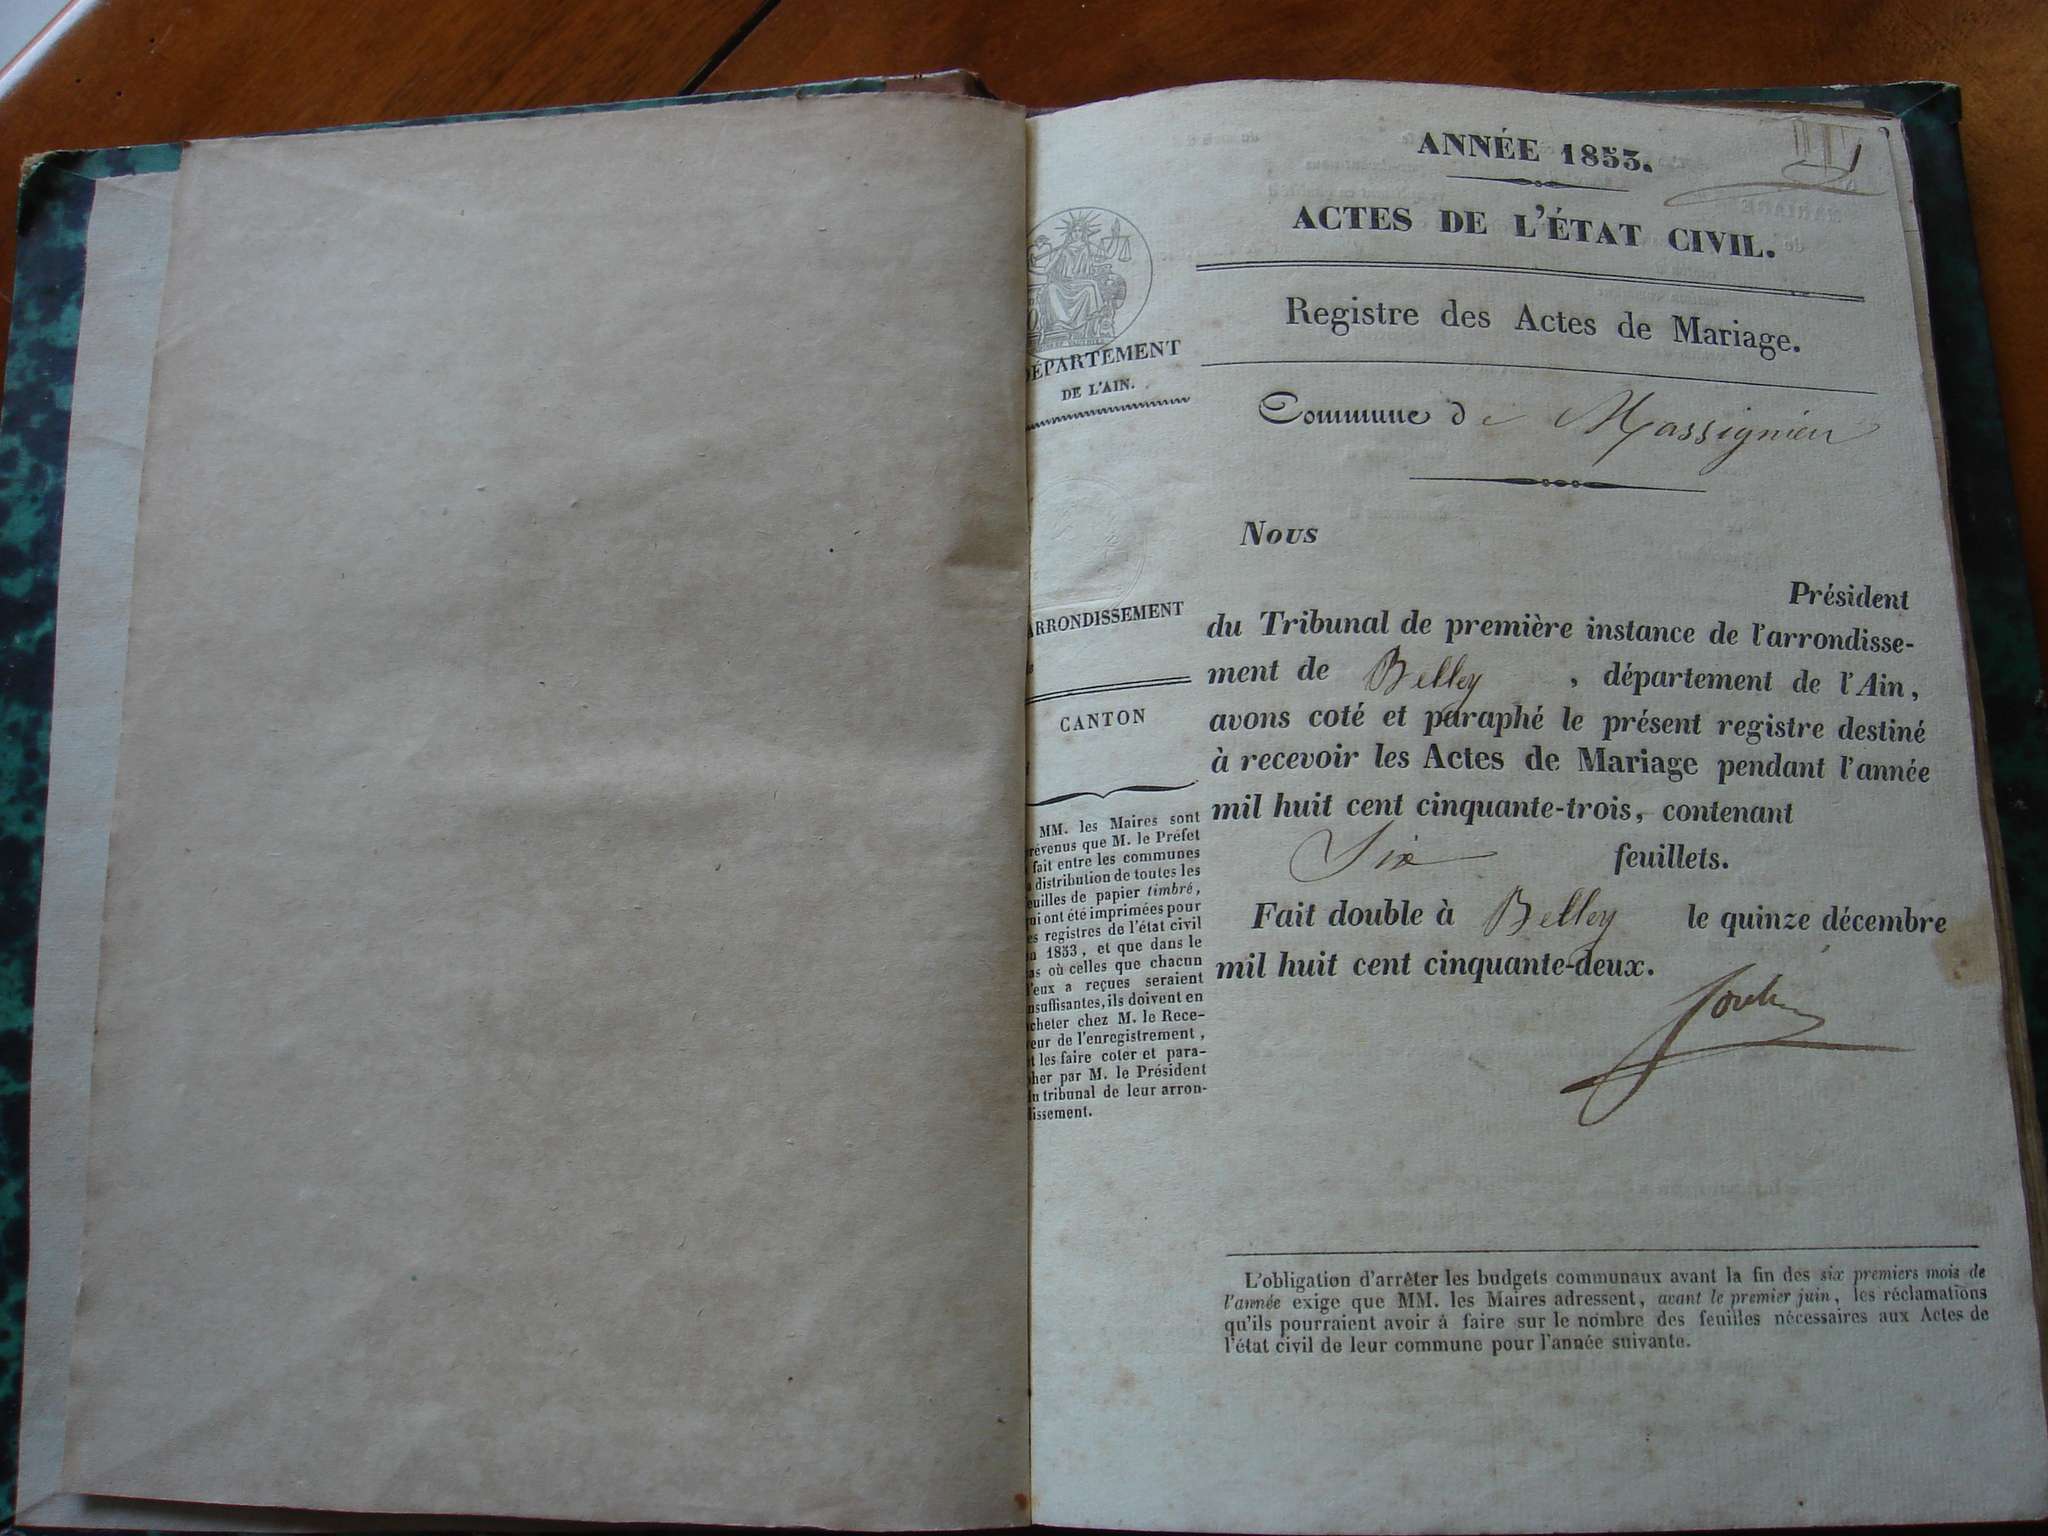 ANNÉE 1853.
ACTES DE L'ÉTAT CIVIL.
Registre des Actes de Mariage.
Commune de Massignieu
Nous
Président
du Tribunal de première instance de l'arrondisse-
ment de Belley, département de l'Ain,
avons coté et paraphé le présent registre destiné
à recevoir les Actes de Mariage pendant l'année
mil huit cent cinquante-trois, contenant
Six feuillets.
Fait double à Belley le quinze décembre
mil huit cent cinquante-deux.
L'obligation d'arrêter les budgets communaux avant la fin des six premiers mois de
l'année exige que MM. les Maires adressent, avant le premier juin, les réclamations
qu'ils pourraient avoir à faire sur le nombre des feuilles nécessaires aux Actes de
l'état civil de leur commune pour l'année suivante.
DÉPARTEMENT
DE L'AIN.
ARRONDISSEMENT
CANTON
MM. les Maires sont
révenus que M. le Préfet
fait entre les communes
a distribution de toutes les
euilles de papier timbré,
ui ont été imprimées pour
es registres de l'état civil
1853, et que dans le
as où celles que chacun
d'eux a reçues seraient
nsuffisantes, ils doivent en
cheter chez M. le Rece-
eur de l'enregistrement,
t les faire coter et para-
pher par M. le Président
u tribunal de leur arron-
issement.